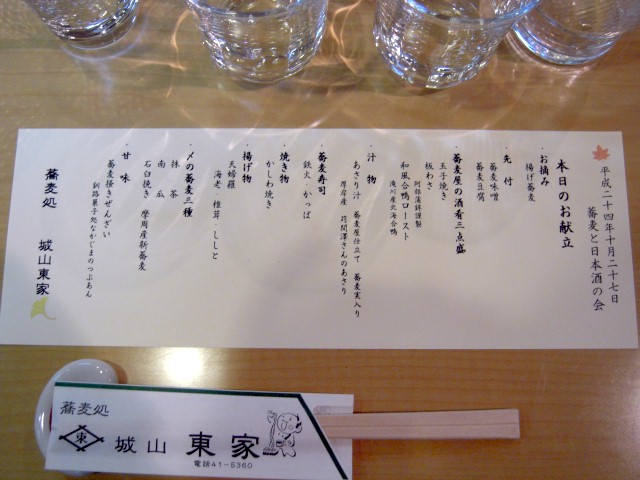 平成二十四年十月二十七日
蕎麦と日本酒の会
本日のお献立
・お摘み
揚げ蕎麦
・先付
蕎麦味噌
蕎麦豆腐
・蕎麦屋の酒肴三点盛
玉子焼き
板わさ
阿部蒲鉾謹製
和風合鴨ロースト
滝川産北海合鴨
・汁物
あさり汁 蕎麦屋仕立て 蕎麦実入り
厚岸産 苻間澤さんのあさり
・蕎麦寿司
鉄火・かっぱ
・焼き物
かしわ焼き
・揚げ物
天婦羅
海老・椎茸・ししと
・〆の蕎麦三種
抹茶
南瓜
石臼挽き 摩周産新蕎麦
・甘味
蕎麦掻きぜんざい
釧路菓子処なかじまのつぶあん
蕎麦処 城山東家
蕎麦処
東
城山 東家
電話41-5360